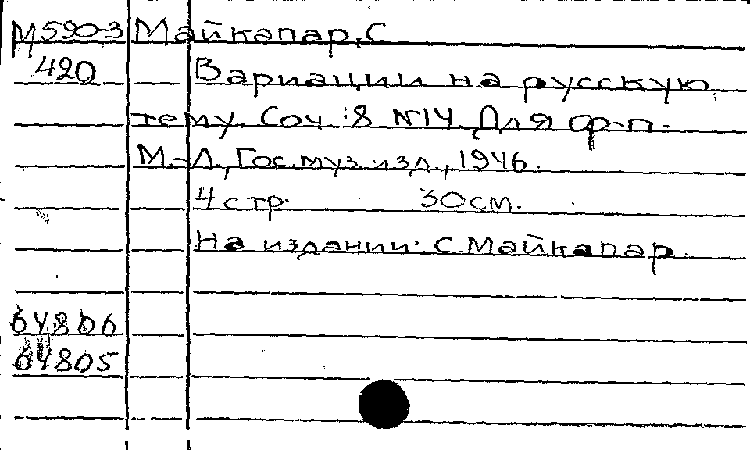 М590-3 Майкапар, С
420 Вариации на русскую
тему. Соч. :8 №14. Для ф-п.
М.-Л., Гос. муз. изд., 1946.
4 стр. 30 см.
На издании: С. Майкапар.
64806
64805